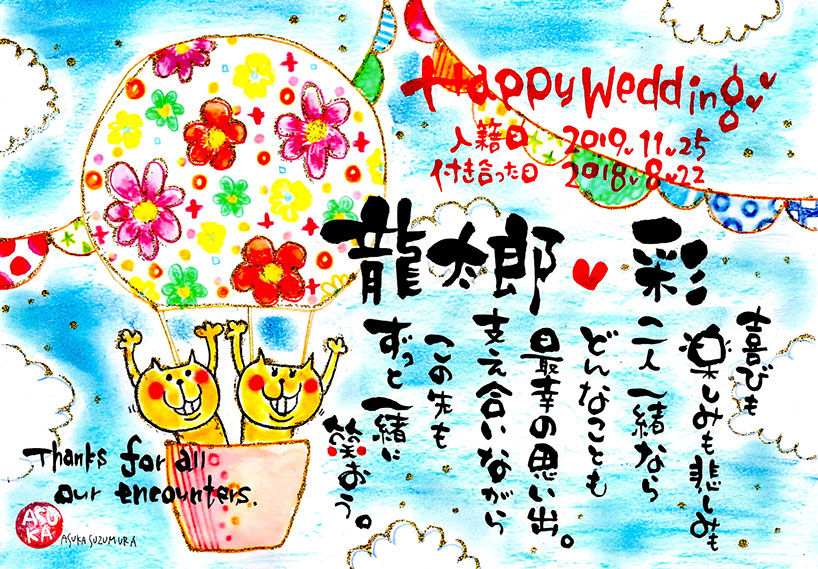 Happy Wedding
入籍日 2019.11.25
付き合った日 2018.8.22
龍太郎♥彩
喜びも
楽しみも悲しみも
二人一緒なら
どんなことも
最幸の思い出。
支え合いながら
この先も
ずっと一緒に
笑おう。
Thanks for all
our encounters.
ASUKA
ASUKA SUZUMURA